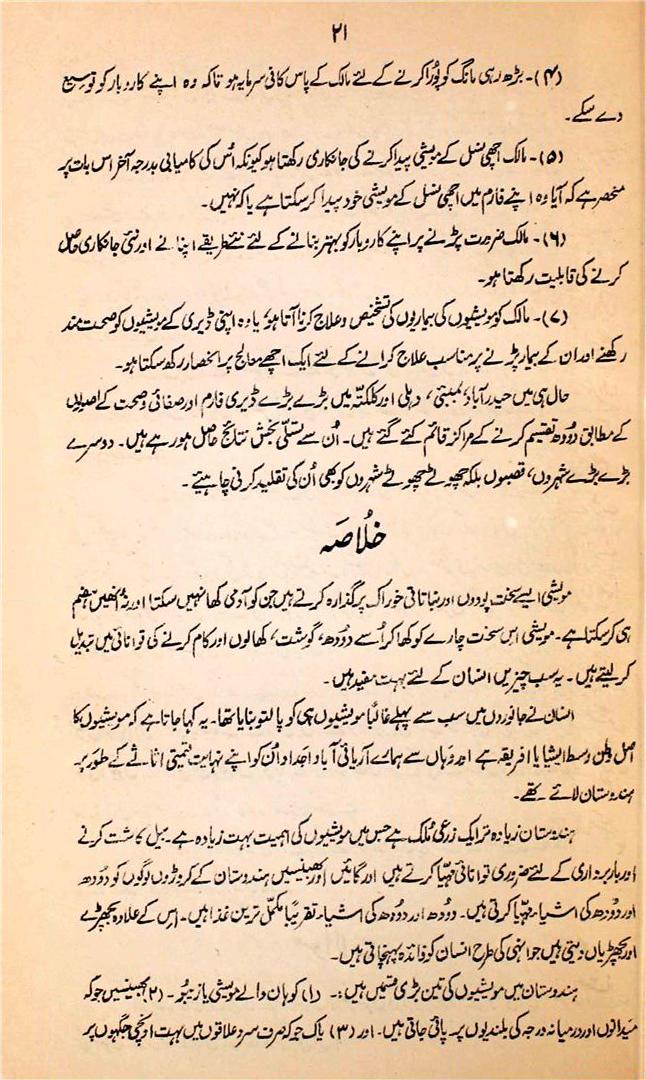 ۲۱
(۴)۔ بڑھ رہی مانگ کو پُورا کرنے کے لئے مالک کے پاس کافی سرمایہ ہو تاکہ وہ اپنے کاروبار کو توسیع
دے سکے۔
(۵)۔ مالک اچھی نسل کے مویشی پیدا کرنے کی جانکاری رکھتا ہو کیونکہ اُس کی کامیابی بدرجہ آخر اس بات پر
منحصر ہے کہ آیا وہ اپنے فارم میں اچھی نسل کے مویشی خود پیدا کر سکتا ہے یا کہ نہیں۔
(۶)۔ مالک ضرورت پڑنے پر اپنے کاروبار کو بہتر بنانے کے لئے نئے طریقے اپنانے اور نئی جانکاری حاصل
کرنے کی قابلیت رکھتا ہو۔
(۷)۔ مالک کو مویشیوں کی بیماریوں کی تشخیص و علاج کرنا آتا ہو، یا وہ اپنی ڈیری کے مویشیوں کو صحت مند
رکھنے اور ان کے بیمار پڑنے پر مناسب علاج کرانے کے لئے ایک اچھے معالج پر انحصار رکھ سکتا ہو۔
حال ہی میں حیدرآباد، بمبئی، دہلی اور کلکتّہ میں بڑے بڑے ڈیری فارم اور صفائی و صحت کے اصولوں
کے مطابق دُودھ تقسیم کرنے کے مراکز قائم کئے گئے ہیں۔ اُن سے تسلّی بخش نتائج حاصل ہو رہے ہیں۔ دوسرے
بڑے بڑے شہروں، قصبوں بلکہ چھوٹے چھوٹے شہروں کو بھی اُن کی تقلید کرنی چاہیئے۔
خلُاصَہ
مویشی ایسے سخت پودوں اور نباتاتی خوراک پر گذارہ کرتے ہیں جن کو آدمی کھا نہیں سکتا اور نہ اُنھیں ہضم
ہی کر سکتا ہے۔ مویشی اس سخت چارے کو کھا کر اُسے دُودھ، گوشت، کھالوں اور کام کرنے کی توانائی میں تبدیل
کر لیتے ہیں۔ یہ سب چیزیں انسان کے لئے بہت مفید ہیں۔
انسان نے جانوروں میں سب سے پہلے غالبًا مویشیوں ہی کو پالتو بنایا تھا۔ یہ کہا جاتا ہے کہ مویشیوں کا
اصل وطن وسط ایشیا یا افریقہ ہے اور وَہاں سے ہمارے آریائی آباو اجداد اُن کو اپنے نہایت قیمتی اثاثے کے طور پر
ہندوستان لائے تھے۔
ہندوستان زیادہ تر ایک زرعی مُلک ہے جس میں مویشیوں کی اہمیت بہت زیادہ ہے۔ بیل کاشت کرنے
اور باربرداری کے لئے ضروری توانائی مُہیّا کرتے ہیں اور گائیں اور بھینسیں ہندوستان کے کروڑوں لوگوں کو دُودھ
اور دُودھ کی اشیاء مُہیّا کرتی ہیں۔ دودھ اور دُودھ کی اشیاء تقریبًا مکمّل ترین غذا ہیں۔ اِس کے علاوہ بچھڑے
اور بچھڑیاں دیتی ہیں جو انہی کی طرح انسان کو فائدہ پہنچاتی ہیں۔
ہندوستان میں مویشیوں کی تین بڑی قسمیں ہیں:۔ (۱) کوہان والے مویشی یا زیبُو۔ (۲) بھینسیں جو کہ
میدانوں اور درمیانہ درجہ کی بلندیوں پر پائی جاتی ہیں۔ اور (۳) یاک جو کہ صرف سرد علاقوں میں بہت اونچی جگہوں پر